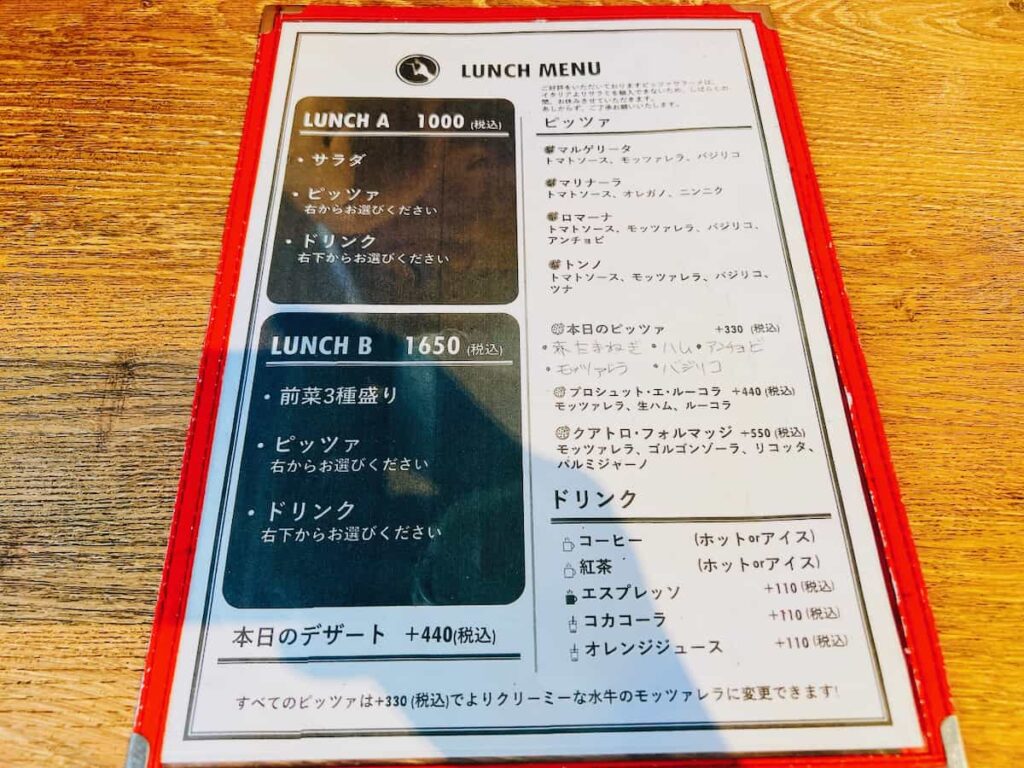 LUNCH MENU
ご好評をいただいておりますピッツァサラーメは、
イタリアよりサラミを輸入できないため、しばらくの
間、お休みさせていただきます。
あしからず、ご了承お願いいたします。
LUNCH A 1000 (税込)
・サラダ
・ピッツァ
右からお選びください
・ドリンク
右下からお選びください
LUNCH B 1650 (税込)
・前菜3種盛り
・ピッツァ
右からお選びください
・ドリンク
右下からお選びください
本日のデザート +440(税込)
ピッツァ
マルゲリータ
トマトソース、モッツァレラ、バジリコ
マリナーラ
トマトソース、オレガノ、ニンニク
ロマーナ
トマトソース、モッツァレラ、バジリコ、
アンチョビ
トンノ
トマトソース、モッツァレラ、バジリコ、
ツナ
本日のピッツァ +330 (税込)
・赤たまねぎ ・ハム ・アンチョビ
・モッツァレラ ・バジリコ
プロシュット・エ・ルーコラ +440(税込)
モッツァレラ、生ハム、ルーコラ
クアトロ・フォルマッジ +550(税込)
モッツァレラ、ゴルゴンゾーラ、リコッタ、
パルミジャーノ
ドリンク
コーヒー (ホットorアイス)
紅茶 (ホットorアイス)
エスプレッソ +110(税込)
コカコーラ +110(税込)
オレンジジュース +110(税込)
すべてのピッツァは+330(税込)でよりクリーミーな水牛のモッツァレラに変更できます!